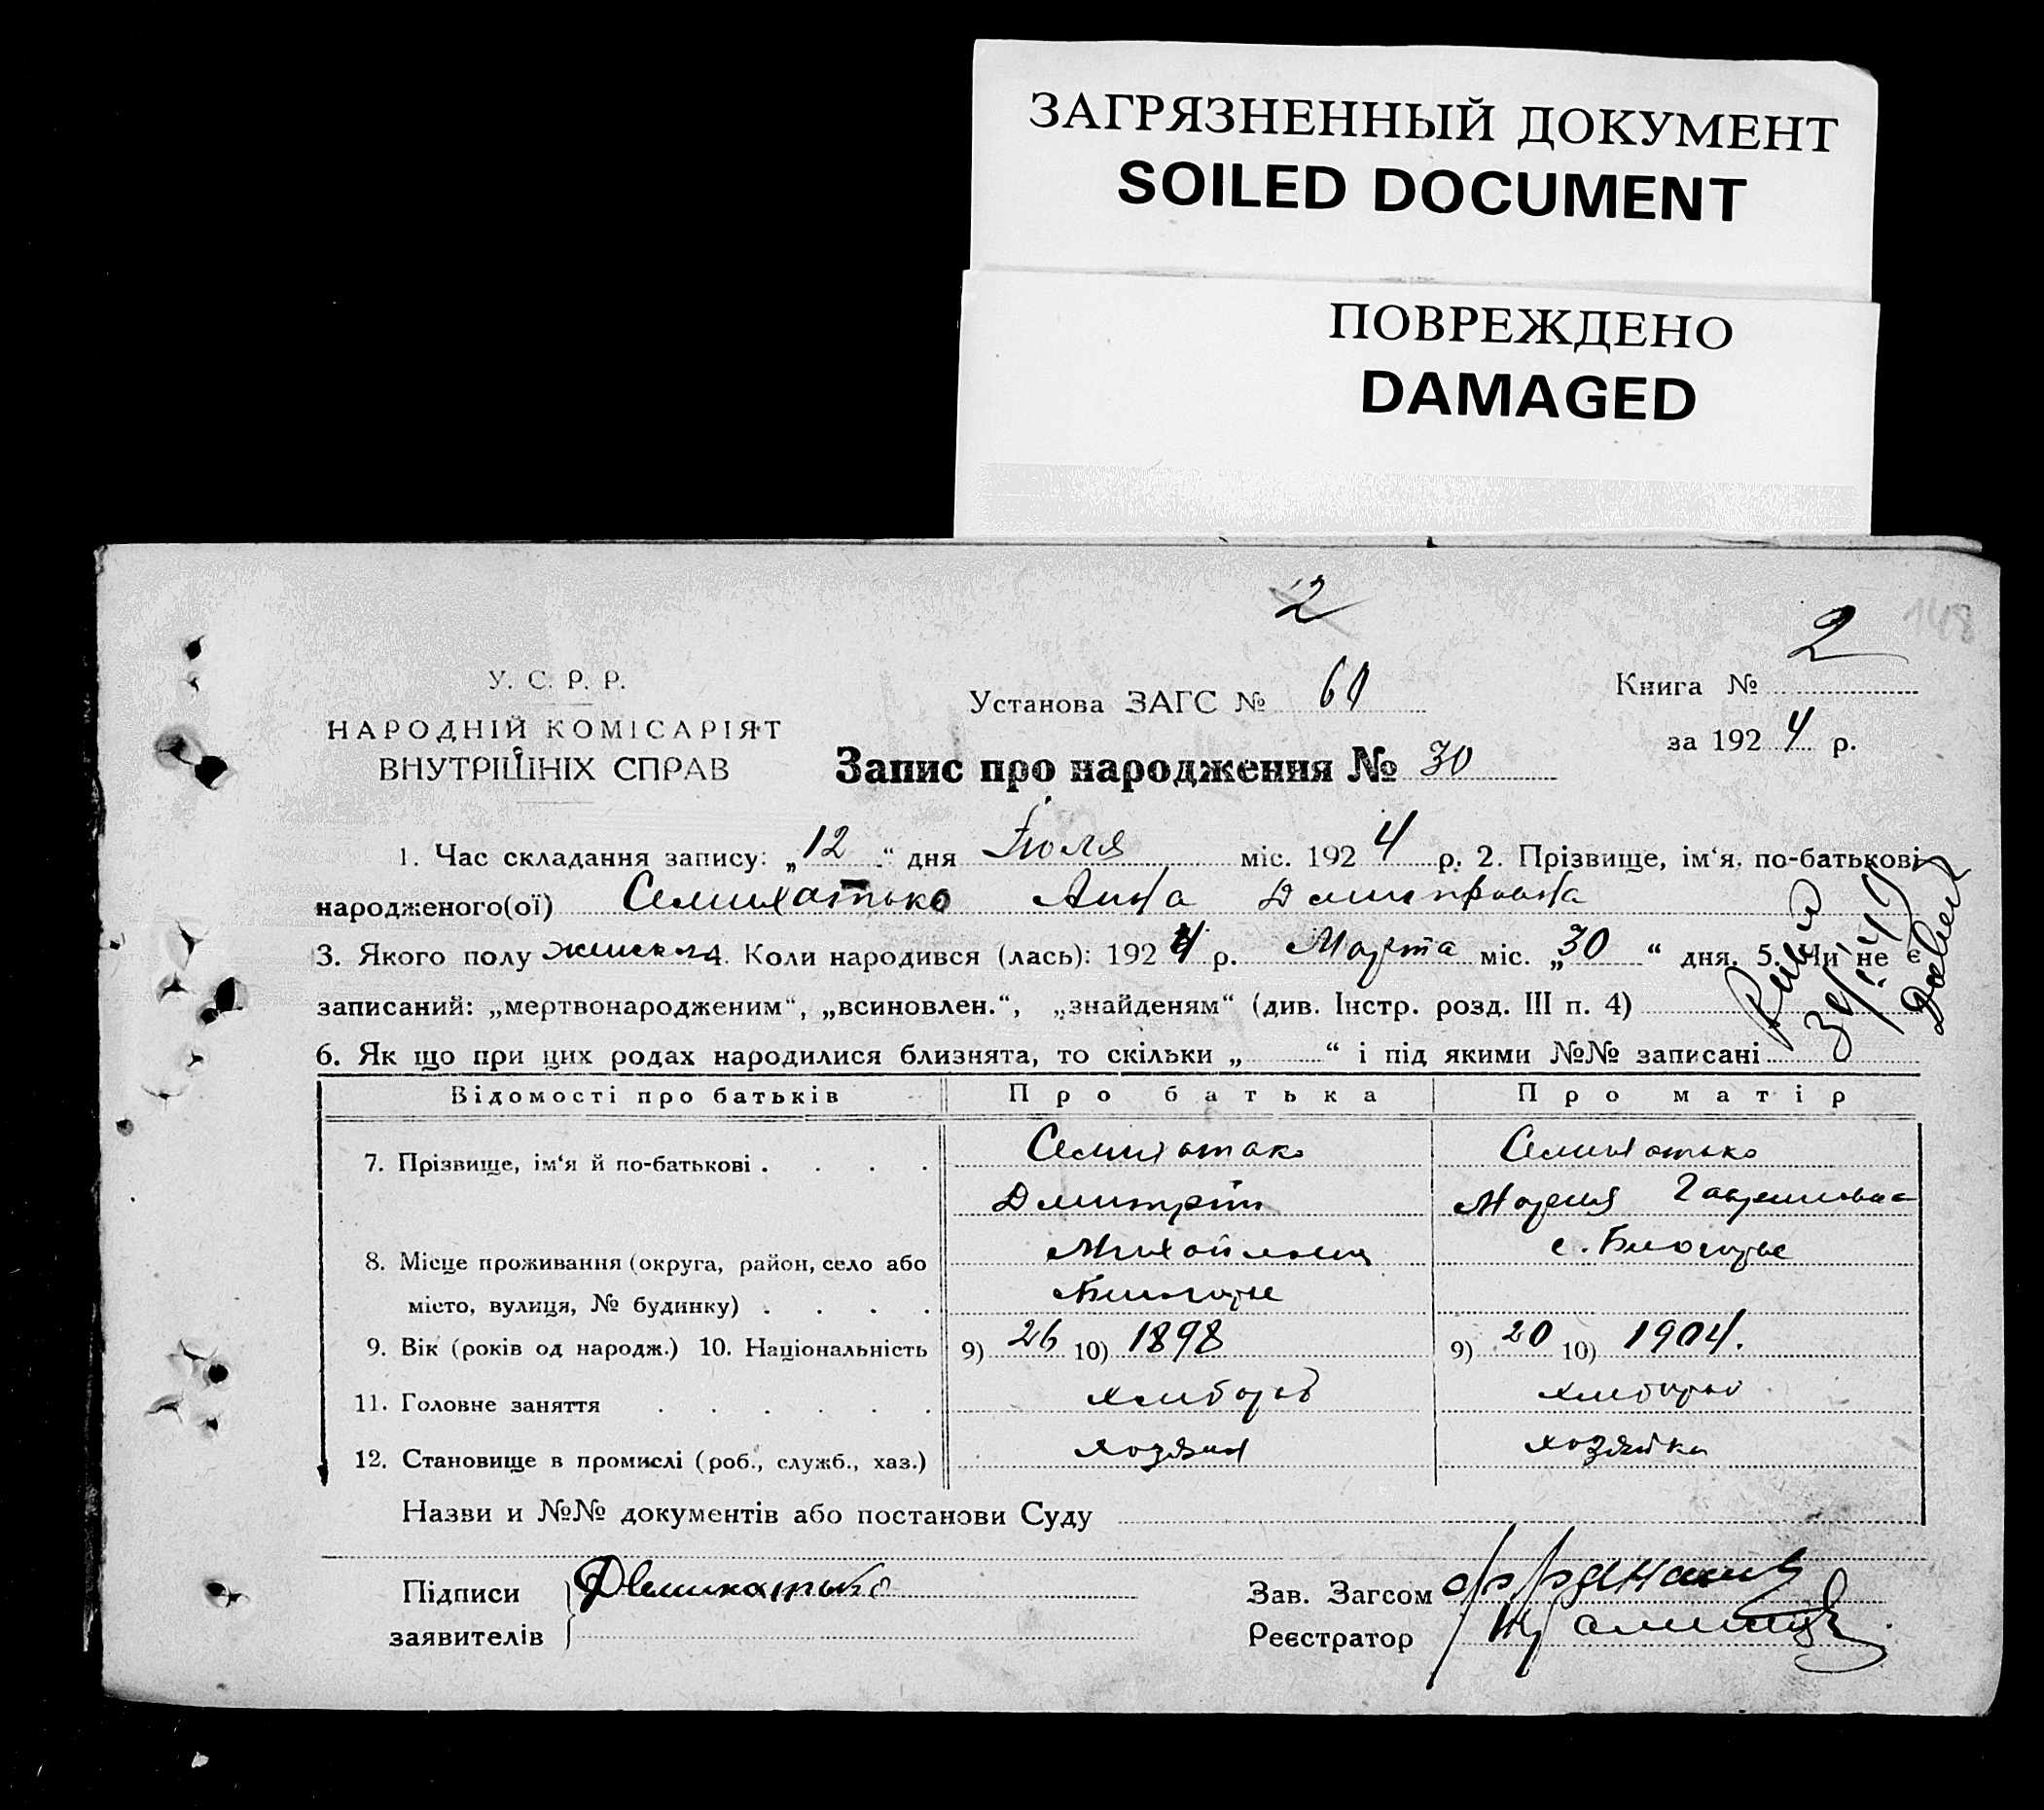 ЗАГРЯЗНЕННЫЙ ДОКУМЕНТ
SOILED DOCUMENT
ПОВРЕЖДЕНО
DAMAGED
2
148
2
У. С. Р. Р.
НАРОДНІЙ КОМІСАРІЯТ
ВНУТРІШНІХ СПРАВ
Установа ЗАГС №
Книга №
за 1924 р.
Запис про народження № 30
1. Час складання запису: „12“ дня Іюля міс. 1924 р. 2. Прізвище, ім‘я, по-батькові
народженого(ої) Семихатько Анна Дмитровна
3. Якого полу 4. Коли народився (лась): 1924 р. Марта міс. „30“ дня. 5. Чи не є
записаний: „мертвонародженим“, „всиновлен.“, „знайденям“ (див. Інстр. розд. III п. 4)
6. Як що при цих родах народилися близнята, то скільки „ “ і під якими №№ записані
Відомості про батьків Про батька Про матір
7. Прізвище, ім‘я й по-батькові . . . . Семихатько Семихатько
Дмитрій Мария Гавриловна
8. Місце проживання (округа, район, село або Михайлович с.
місто, вулиця, № будинку) . . . .
9. Вік (років од народж.) 10. Національність 9) 26 10) 1898 9) 20 10) 1904.
11. Головне заняття . . . . . . хлебороб хлебороб
12. Становище в промислі (роб., служб., хаз.) хозяин хозяйка
Назви и №№ документів або постанови Суду
Підписи Д Семихатько
заявителів
Зав. Загсом
Реєстратор